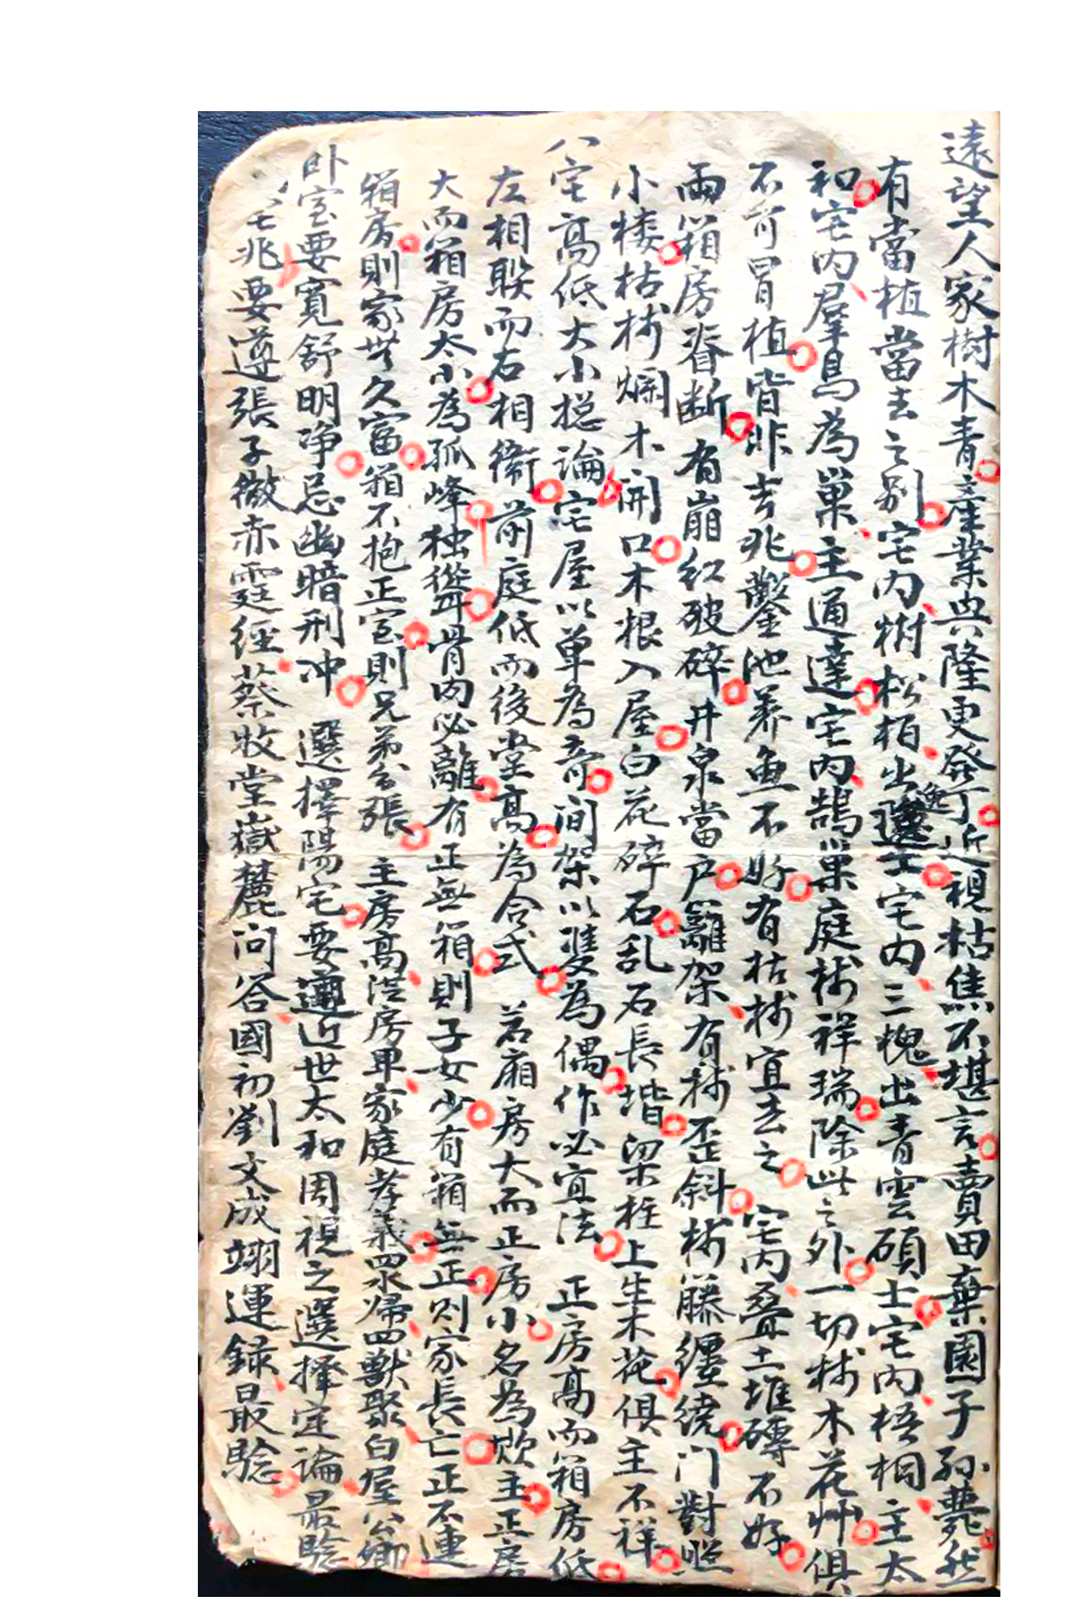 遠望人家樹木青產業興隆更發丁近視枯焦不堪言賣田棄園子孙薨然
有當植當去之別宅内樹松栢出逸士宅内三槐出青雲碩士宅内梧桐主太
和宅内群鳥為巢主通達宅内鵲巢庭树祥瑞除此之外一切树木花艸俱
不可冒植皆非吉兆鑿池养魚不好有枯树宜去之 宅内叠土堆磚不好
兩箱房脊断有崩红破碎井泉當户籬架有树歪斜树籐纏绕门對照
小楼枯树爛木開口木根入屋白花碎石乱石長堦梁柱上生木花俱主不祥
八宅高低大小揔論宅屋以单為奇间架以雙為偶作必宜法 正房高而箱房低
左相联而右相衛前庭低而後堂高為合式 若廂房大而正房小名為欺主正房
大而箱房太小為孤峰独聳骨肉必離有正無箱則子女少有箱無正则家長亡正不連
箱房則家世久富箱不抱正室則兄弟分張 主房高從房卑家庭孝義眾归四獸聚白屋公卿
卧室要寬舒明净忌幽暗刑冲 選擇陽宅要遵近世太和周視之選擇定論最騐
宅兆要遵張子微赤霆經蔡牧堂嶽麓问答國初劉文成翊運録最騐